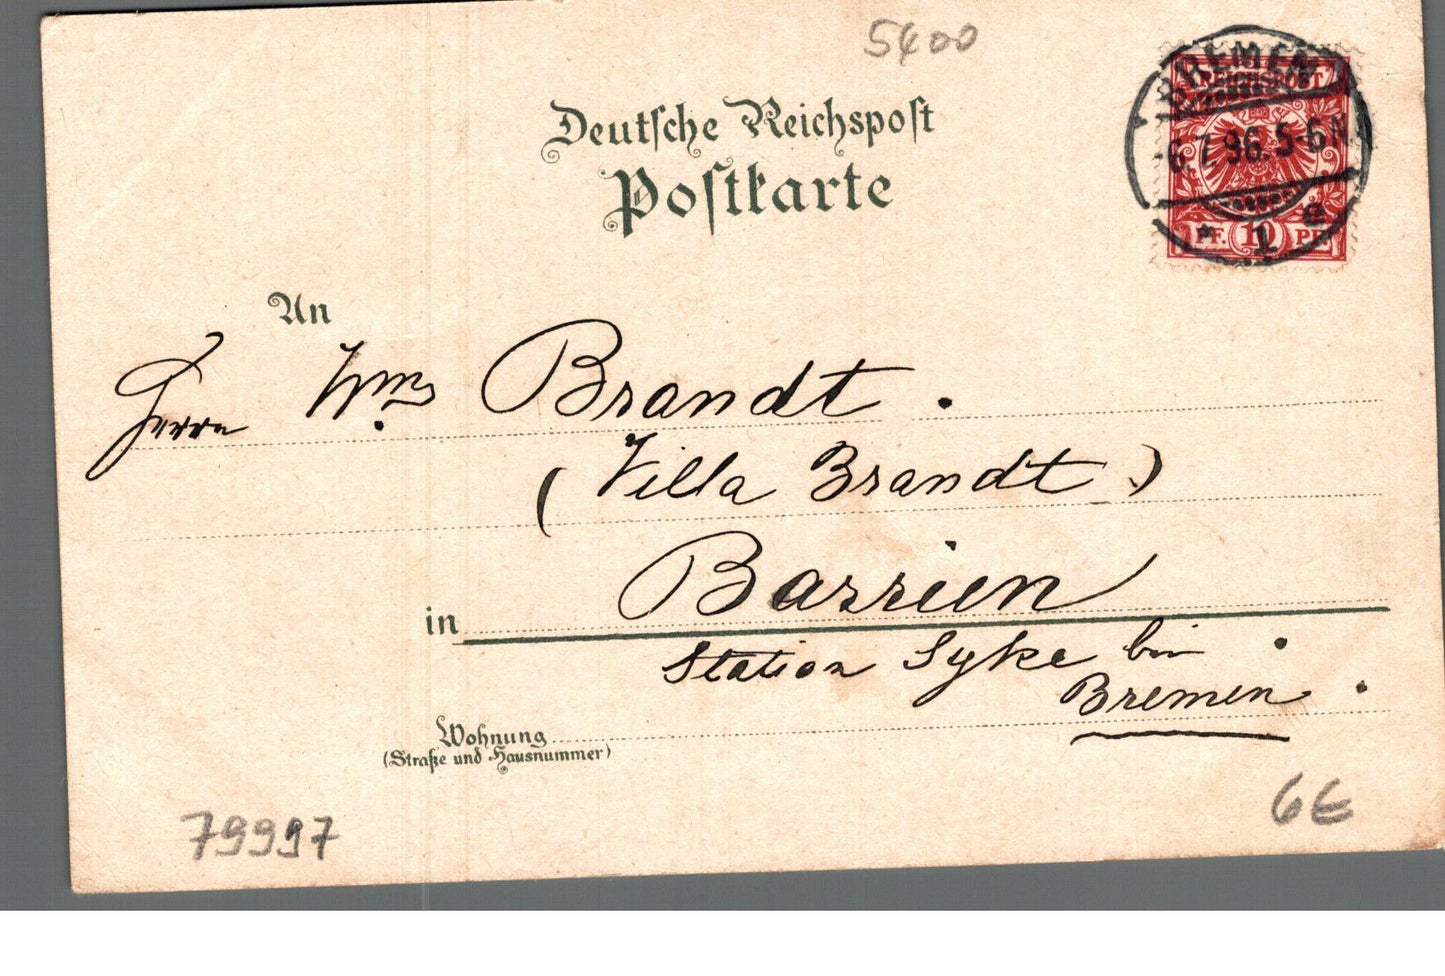 5400
Deutsche Reichspost
Postkarte
BREMEN
REICHSPOST
-6.7.96.5-6N.
* 1 e
PF. 10 PF.
An
Herrn Wm. Brandt.
(Villa Brandt)
in Barrien
Station Syke bei
Bremen.
Wohnung
(Straße und Hausnummer)
79997
6€